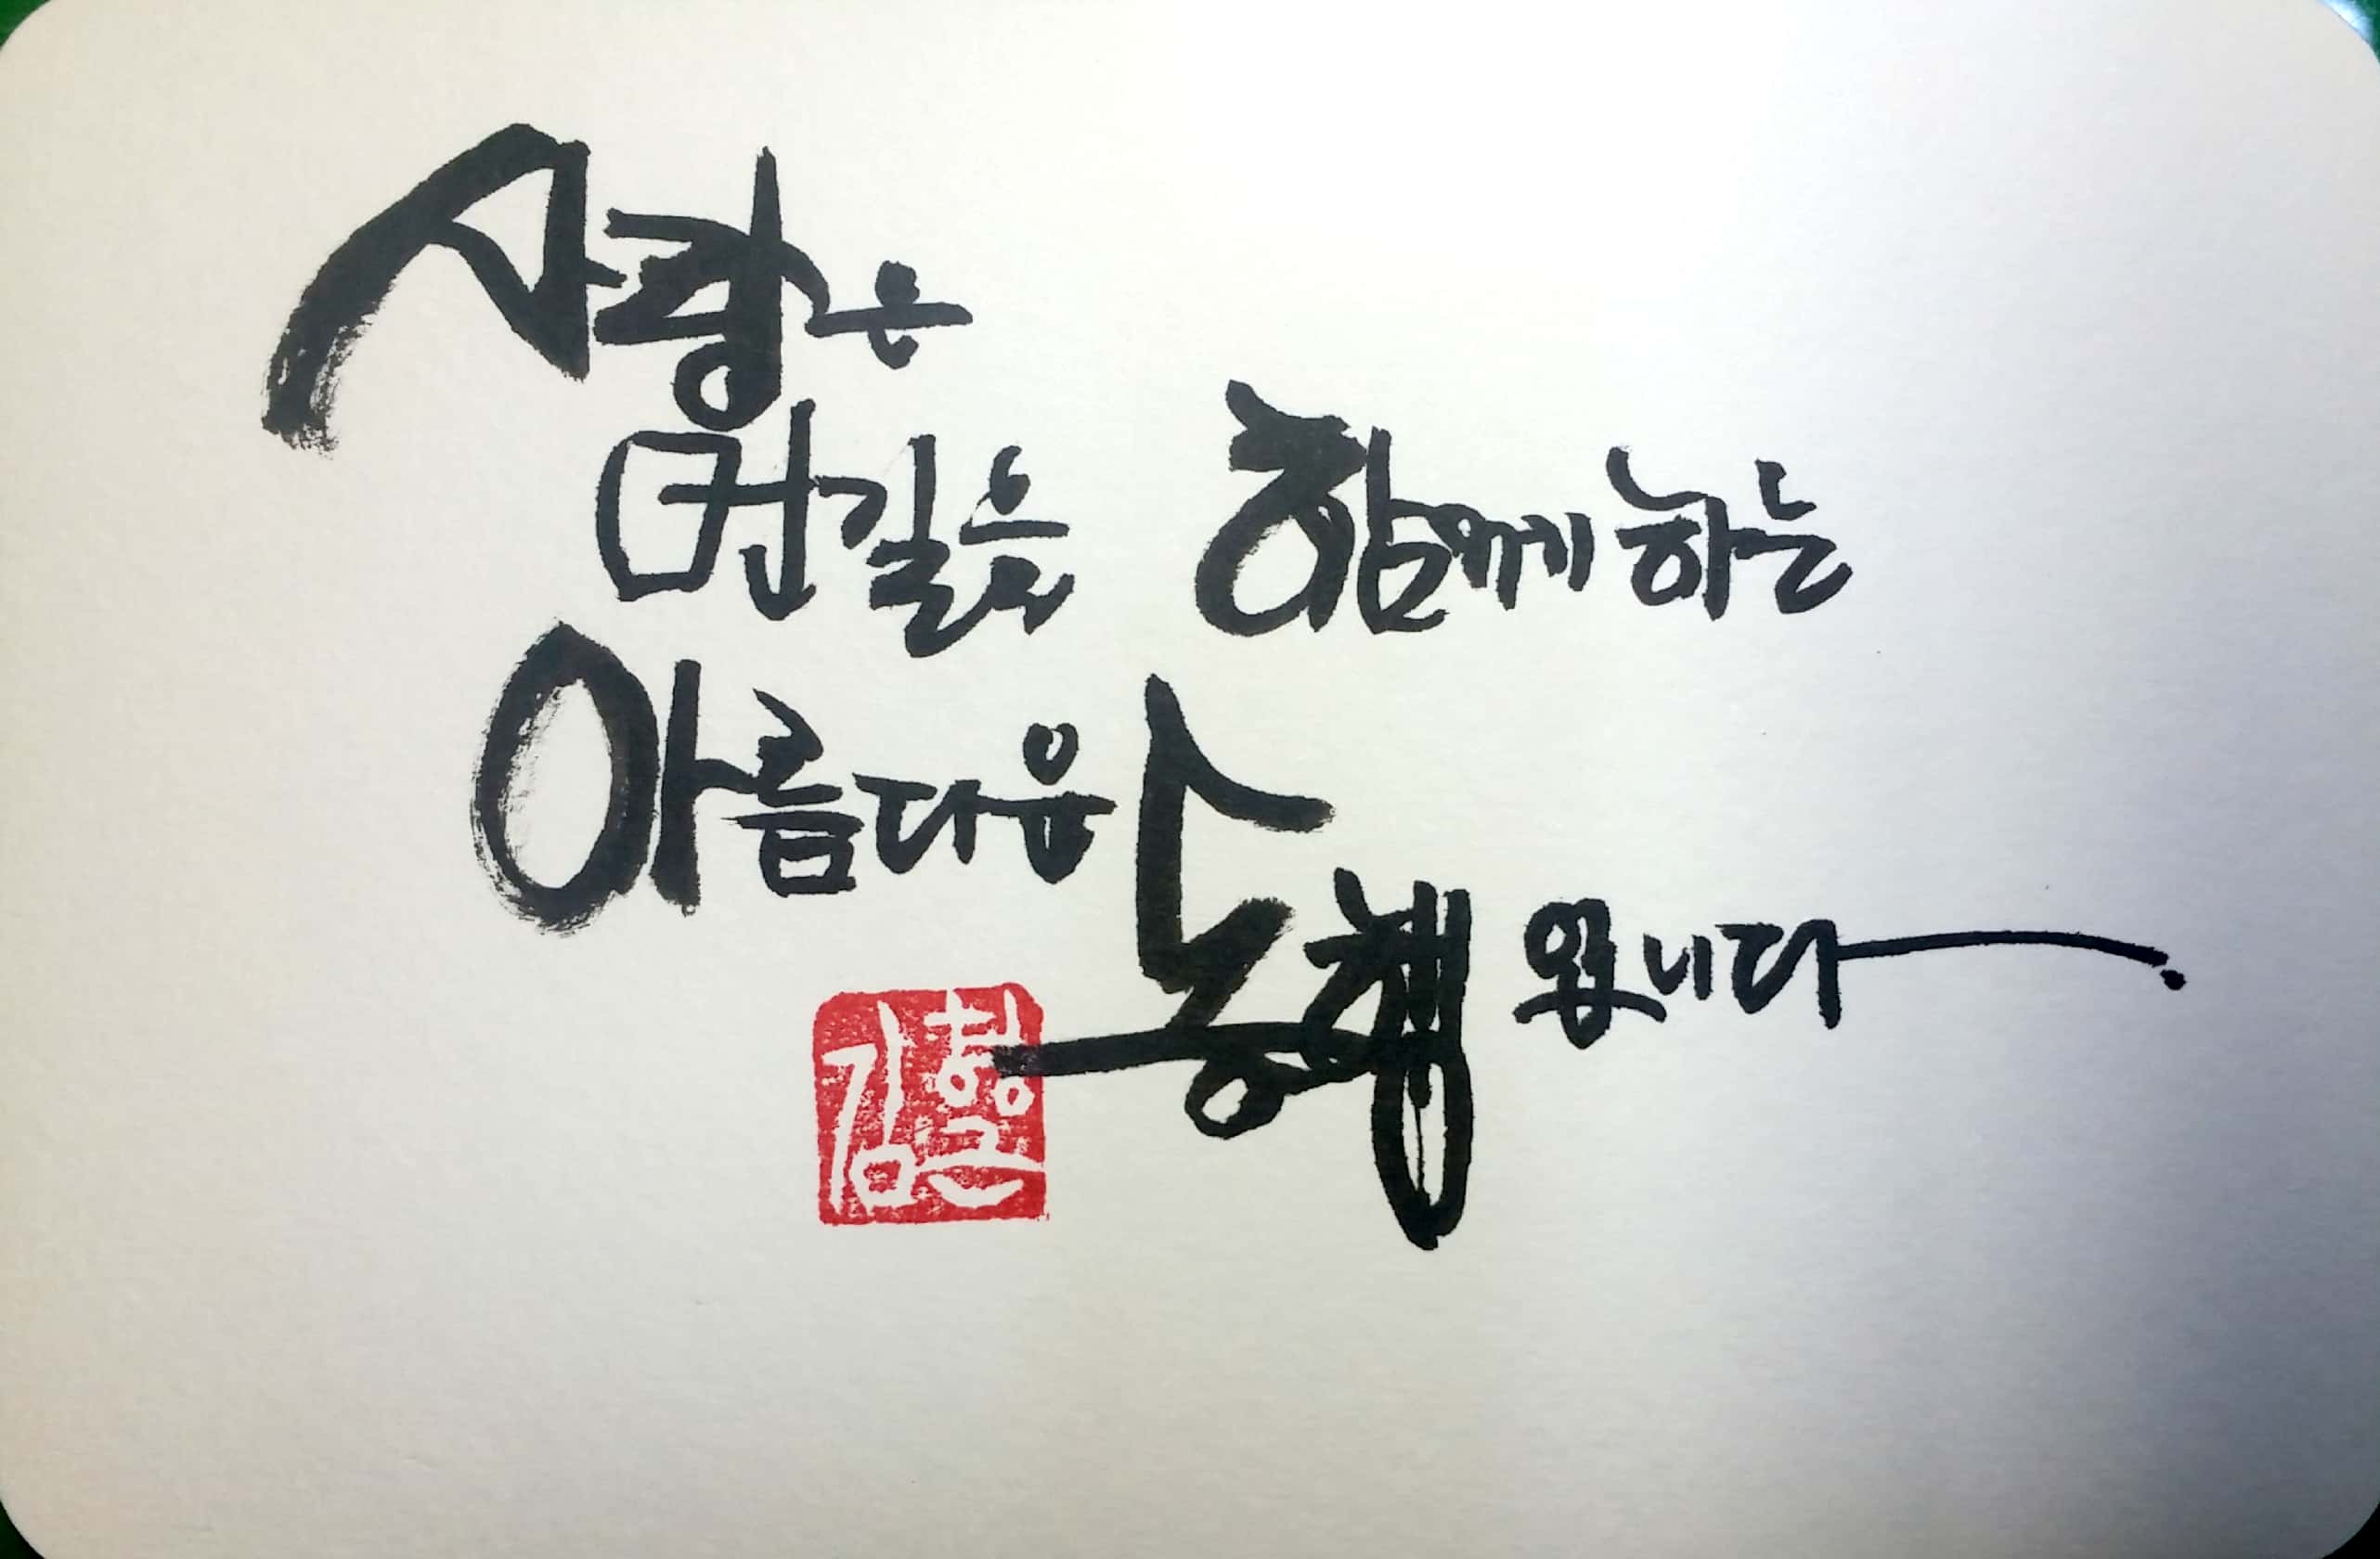 사랑은
먼길을 함께하는
아름다운
동행입니다.